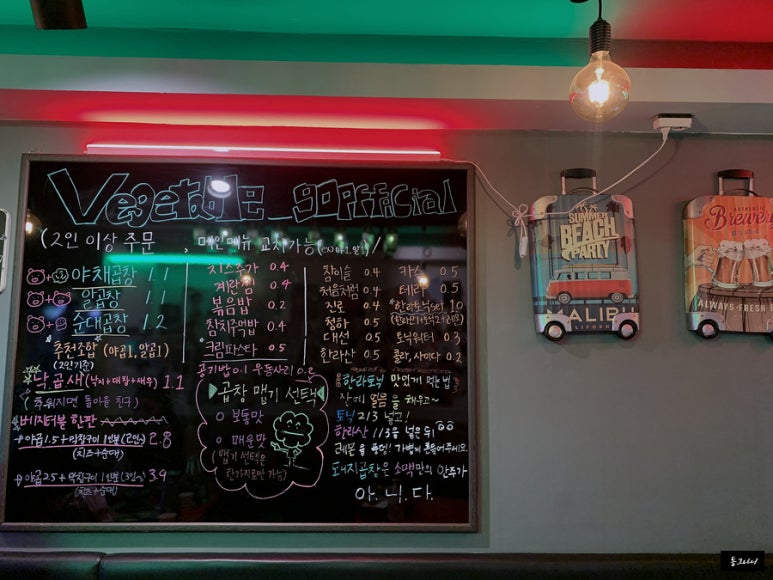 Vegetable_gopfficial
(2인 이상 주문, 메인메뉴 교차가능 (ex) 야1, 알1)
야채곱창 1.1
알곱창 1.1
순대곱창 1.2
추천조합 (야곱1, 알곱1)
(2인기준)
낙곱새 (낙지+대창+새우) 1.1
(추워지면 돌아올 친구)
베지터블 한판
→ 야곱1.5 + 막창구이 1인분 (2인分) 2.8
(치즈+순대)
→ 야곱2.5 + 막창구이 1인분 (3인分) 3.9
(치즈+순대)
치즈추가 0.4
계란찜 0.4
볶음밥 0.2
참치주먹밥 0.4
크림파스타 0.5
공기밥 0.1 우동사리 0.2
곱창 맵기 선택
보통맛
매운맛
(맵기 선택은
한가지로만 가능)
참이슬 0.4
처음처럼 0.4
진로 0.4
청하 0.5
대선 0.5
한라산 0.5
카스 0.5
테라 0.5
한라토닉set 1.0
(한라산1+토닉2+레몬)
토닉워터 0.3
콜라, 사이다 0.2
한라토닉 맛있게 먹는 법
잔에 얼음을 채우고~
토닉 2/3 넣고!
한라산 1/3을 넣은 뒤
레몬을 퐁당! 가볍게 흔들어주세요.
돼지곱창은 소맥만의 안주가
아.니.다.
SUMMER
BEACH
PARTY
MALIBU
CALIFORNIA
AUTHENTIC
Brewery
ALWAYS-FRESH
동그라미